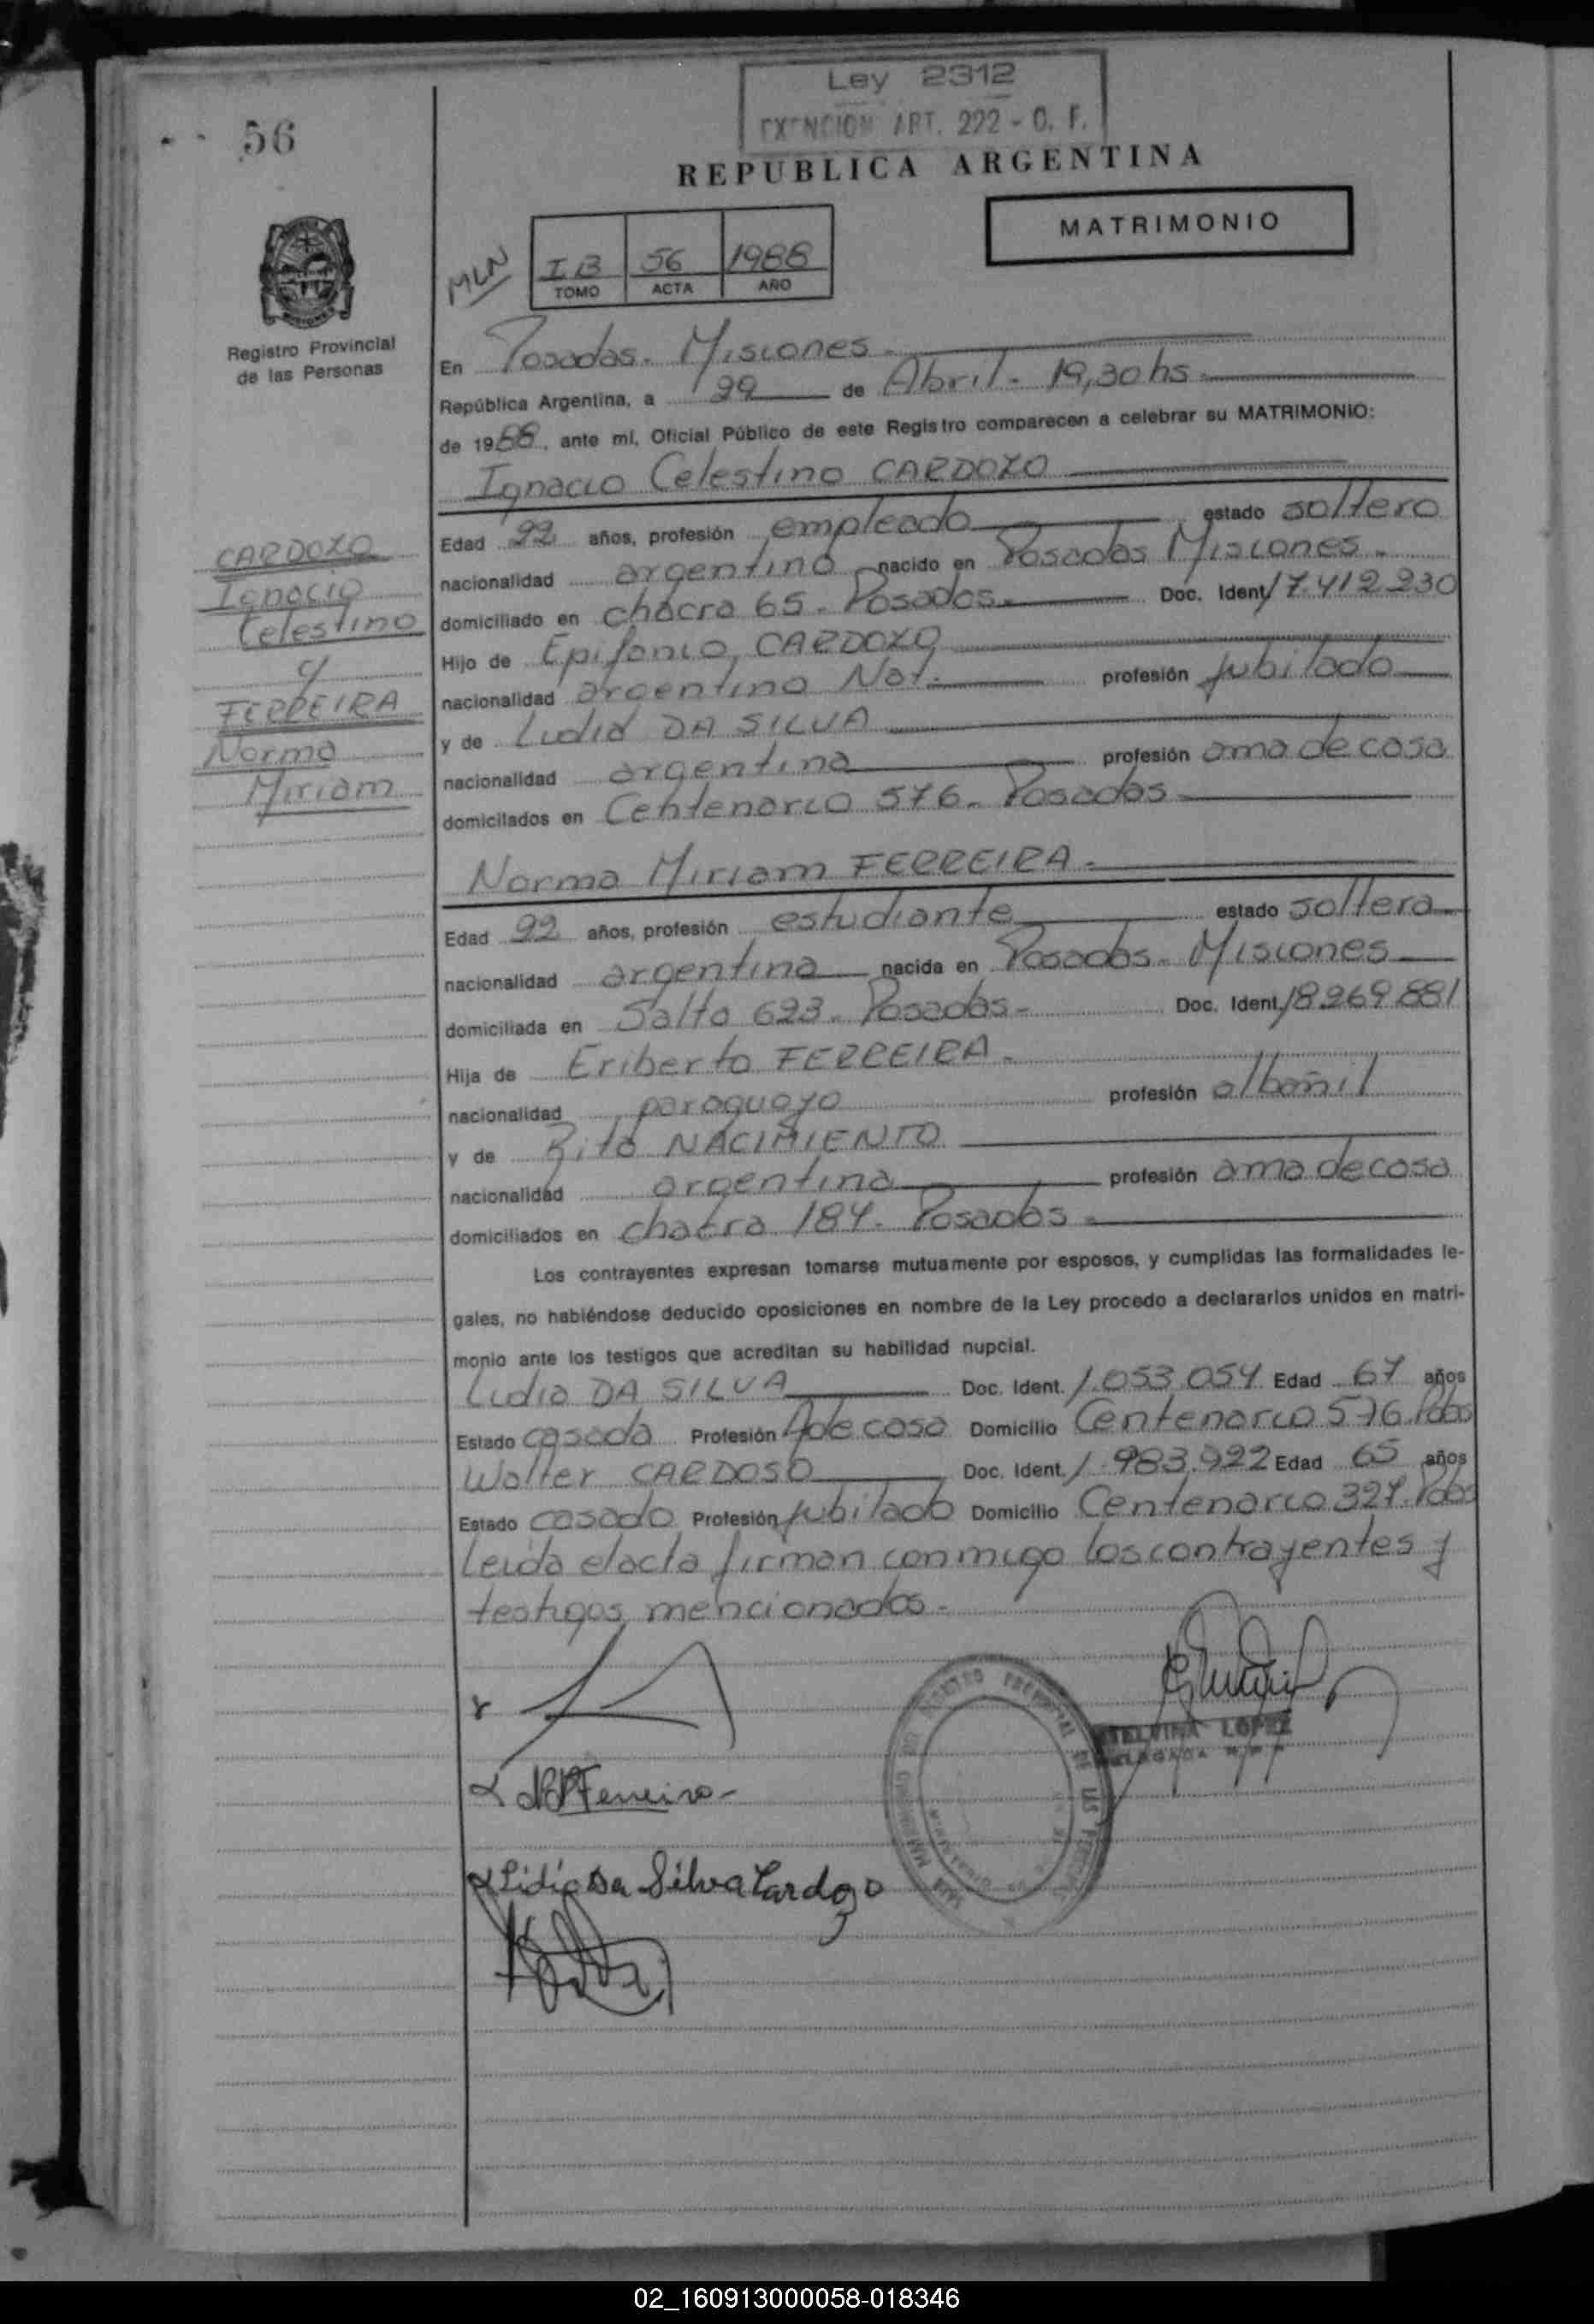 Ley 2312
EXENCION ART. 222 - C. F.
56
REPUBLICA ARGENTINA
MATRIMONIO
MLN
I B 56 1988
TOMO ACTA AÑO
Registro Provincial
de las Personas
En Posadas. Misiones.
República Argentina, a 22 de Abril. 19,30 hs.
de 1988, ante mí, Oficial Público de este Registro comparecen a celebrar su MATRIMONIO:
Ignacio Celestino CARDOZO
Edad 22 años, profesión empleado estado soltero
nacionalidad argentino nacido en Posadas Misiones.
domiciliado en chacra 65. Posadas. Doc. Ident. 17.412.230
Hijo de Epifanio CARDOZO
nacionalidad argentino Nat. profesión jubilado
y de Lidia DA SILVA
nacionalidad argentina profesión ama de casa
domicilados en Centenario 576. Posadas
CARDOZO
Ignacio
Celestino
c/
FERREIRA
Norma
Miriam
Norma Miriam FERREIRA.
Edad 22 años, profesión estudiante estado soltera
nacionalidad argentina nacida en Posadas. Misiones
domiciliada en Salta 623. Posadas. Doc. Ident. 18.269.881
Hija de Eriberto FERREIRA.
nacionalidad paraguayo profesión albañil
y de Rita NACIMIENTO
nacionalidad argentina profesión ama de casa
domiciliados en chacra 184. Posadas.
Los contrayentes expresan tomarse mutuamente por esposos, y cumplidas las formalidades le-
gales, no habiéndose deducido oposiciones en nombre de la Ley procedo a declararlos unidos en matri-
monio ante los testigos que acreditan su habilidad nupcial.
Lidia DA SILVA Doc. Ident. 1.053.054 Edad 67 años
Estado casada Profesión A de casa Domicilio Centenario 576. Pdas
Walter CARDOSO Doc. Ident. 1.983.922 Edad 65 años
Estado casado Profesión jubilado Domicilio Centenario 327. Pdas
Leida el acta firman conmigo los contrayentes y
testigos mencionados.
ETELVINA LOPEZ
DELEGADA
Ferreira
Lidia Da Silva Cardozo
02_160913000058-018346